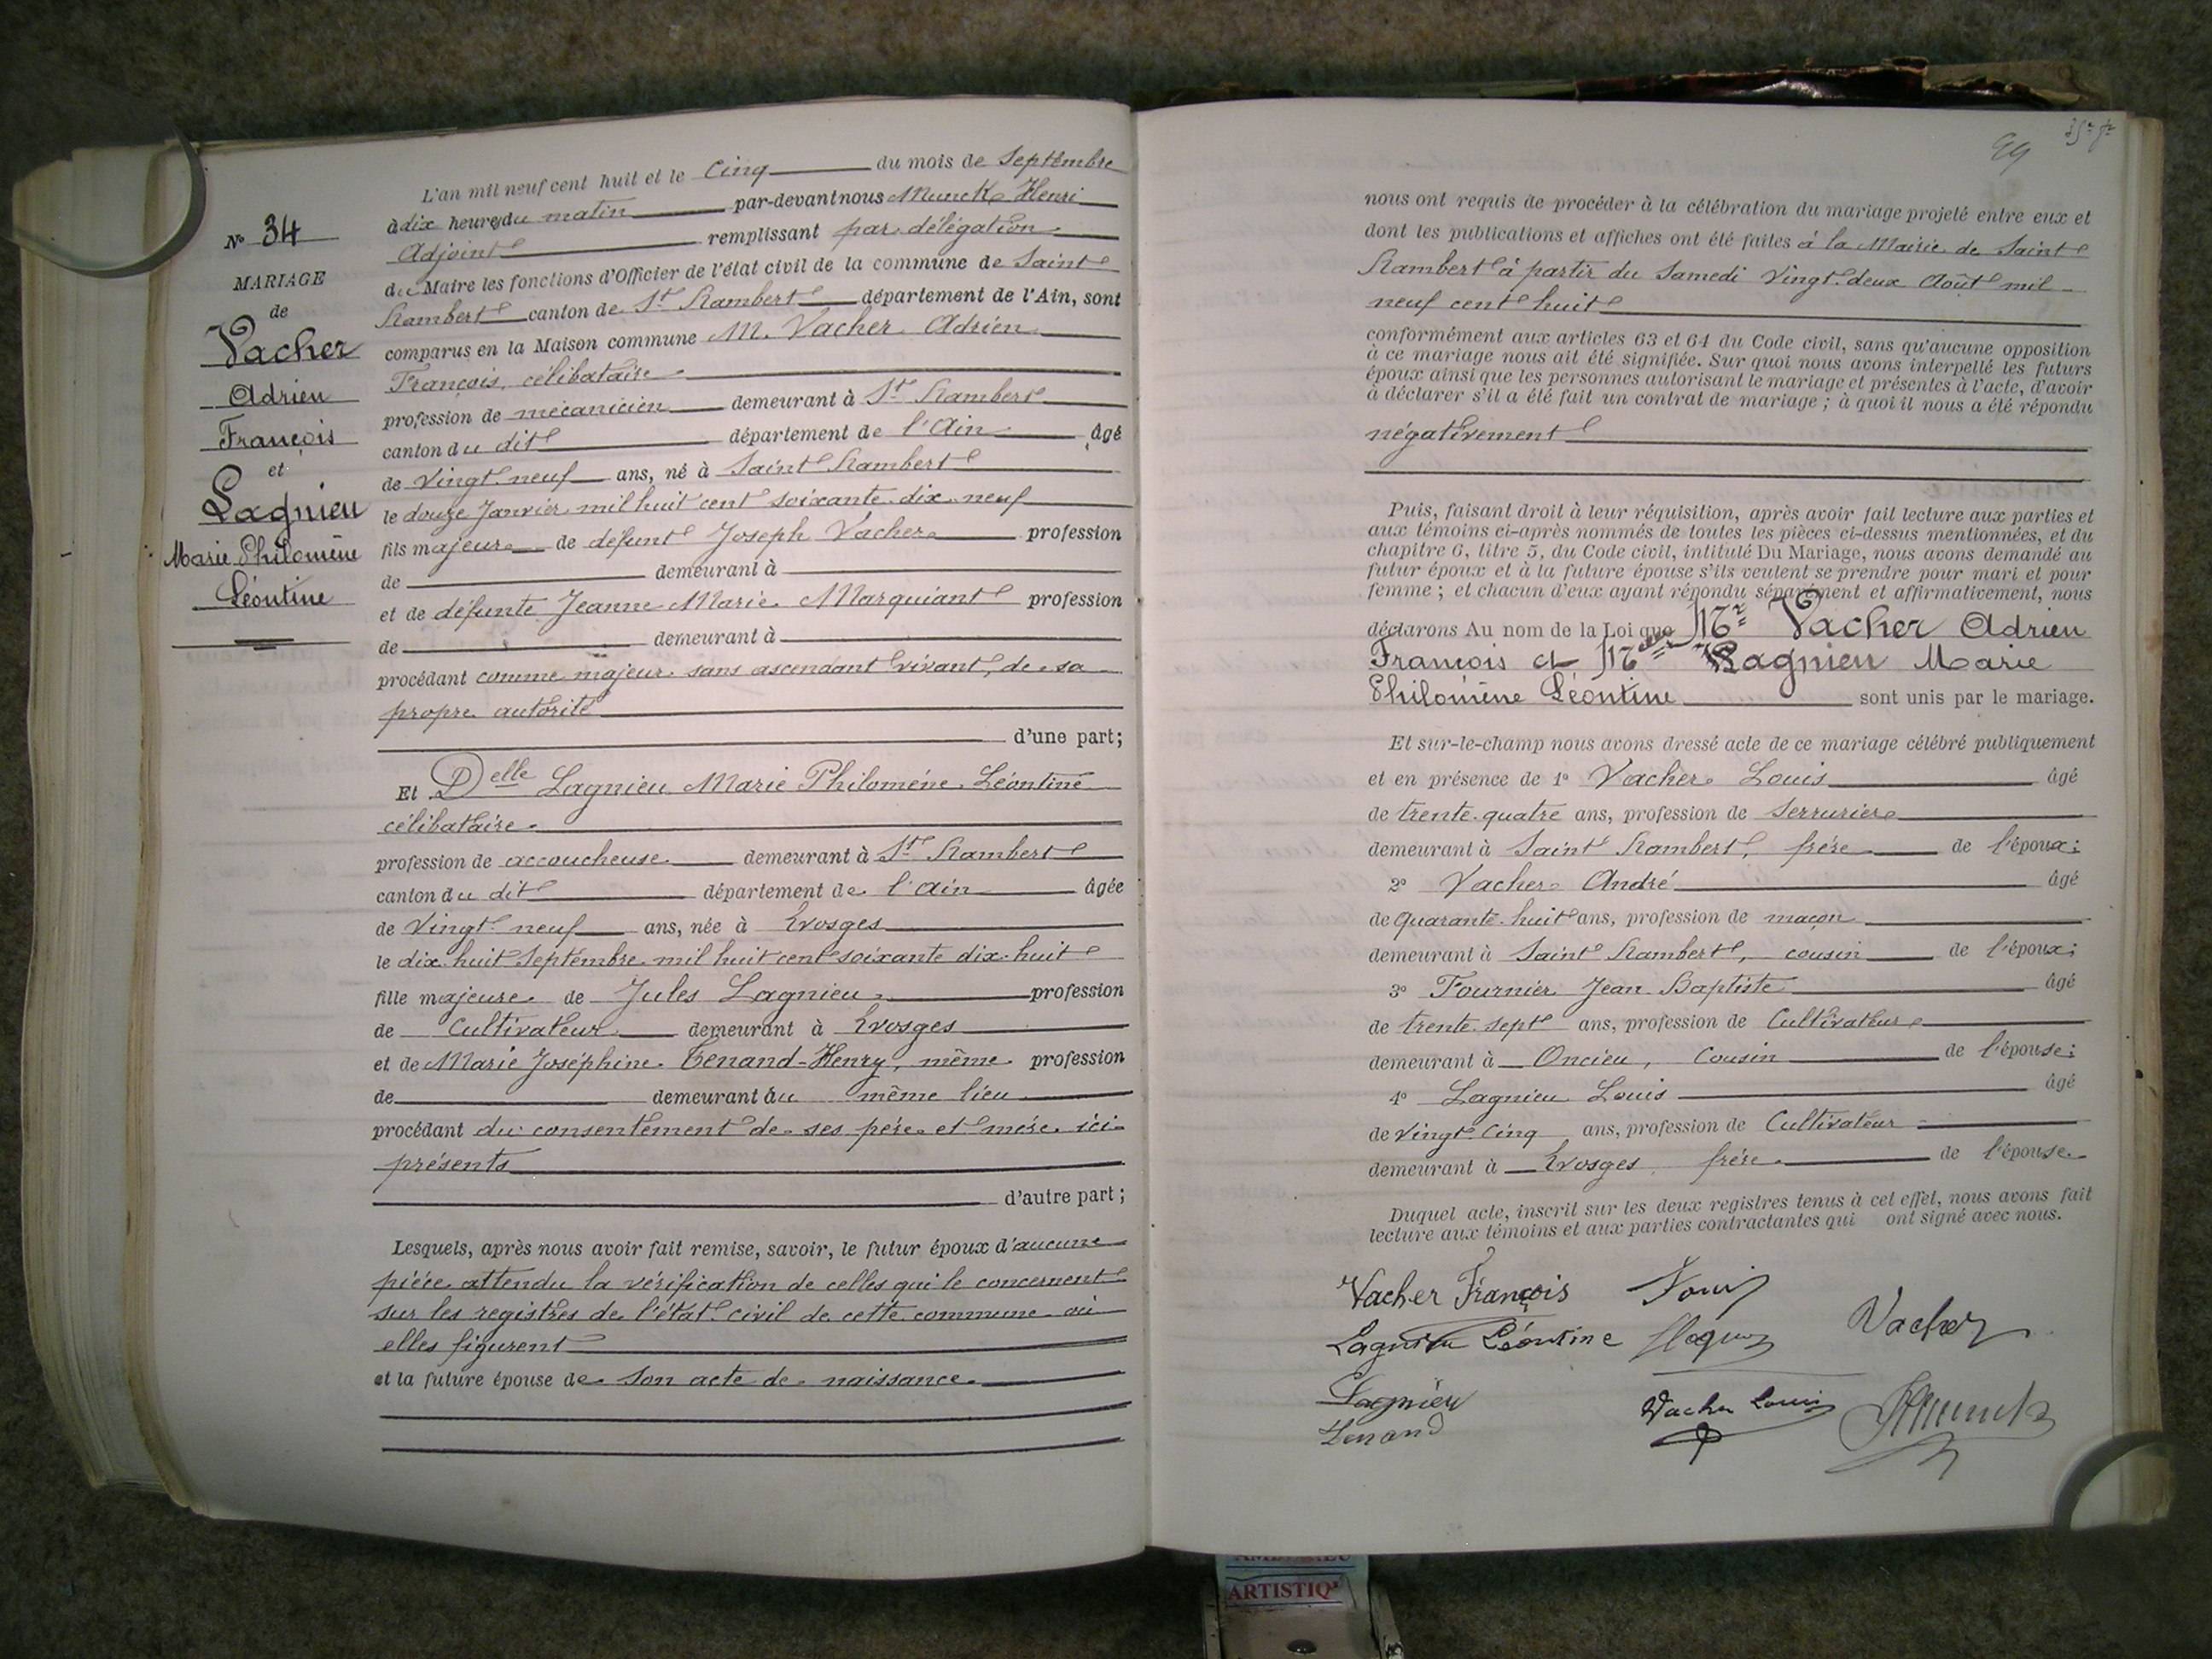 N° 34
MARIAGE
de
Vacher
Adrien
François
et
Lagnieu
Marie Philomène
Léontine
L'an mil neuf cent huit et le cinq du mois de Septembre
à dix heures du matin par-devant nous Munck Henri
Adjoint remplissant par délégation
du Maire les fonctions d'Officier de l'état civil de la commune de Saint
Rambert canton de St Rambert département de l'Ain, sont
comparus en la Maison commune M. Vacher Adrien
François, célibataire
profession de mécanicien demeurant à St Rambert
canton du dit département de l'Ain âgé
de vingt-neuf ans, né à Saint Rambert
le douze Janvier mil huit cent soixante-dix-neuf
fils majeur de défunt Joseph Vacher profession
de demeurant à
et de défunte Jeanne Marie Marquiant profession
de demeurant à
procédant comme majeur sans ascendant vivant, de sa
propre autorité
d'une part;
Et Delle Lagnieu Marie Philomène Léontine
célibataire
profession de accoucheuse demeurant à St Rambert
canton du dit département de l'Ain âgée
de vingt-neuf ans, née à Evosges
le dix-huit Septembre mil huit cent soixante dix-huit
fille majeure de Jules Lagnieu profession
de Cultivateur demeurant à Evosges
et de Marie Joséphine Tenand-Henry, même profession
de demeurant au même lieu
procédant du consentement de ses père et mère ici
présents
d'autre part;
Lesquels, après nous avoir fait remise, savoir, le futur époux d'aucune
pièce attendu la vérification de celles qui le concernent
sur les registres de l'état-civil de cette commune où
elles figurent
et la future épouse de son acte de naissance
99
nous ont requis de procéder à la célébration du mariage projeté entre eux et
dont les publications et affiches ont été faites à la Mairie de Saint
Rambert à partir du Samedi vingt-deux Août mil
neuf cent huit
conformément aux articles 63 et 64 du Code civil, sans qu'aucune opposition
à ce mariage nous ait été signifiée. Sur quoi nous avons interpellé les futurs
époux ainsi que les personnes autorisant le mariage et présentes à l'acte, d'avoir
à déclarer s'il a été fait un contrat de mariage; à quoi il nous a été répondu
négativement
Puis, faisant droit à leur réquisition, après avoir fait lecture aux parties et
aux témoins ci-après nommés de toutes les pièces ci-dessus mentionnées, et du
chapitre 6, titre 5, du Code civil, intitulé Du Mariage, nous avons demandé au
futur époux et à la future épouse s'ils veulent se prendre pour mari et pour
femme; et chacun d'eux ayant répondu séparément et affirmativement, nous
déclarons Au nom de la Loi que Mr Vacher Adrien
François et Melle Lagnieu Marie
Philomène Léontine sont unis par le mariage.
Et sur-le-champ nous avons dressé acte de ce mariage célébré publiquement
et en présence de 1° Vacher Louis âgé
de trente-quatre ans, profession de serrurier
demeurant à Saint Rambert, frère de l'époux;
2° Vacher André âgé
de quarante-huit ans, profession de maçon
demeurant à Saint Rambert, cousin de l'époux;
3° Fournier Jean Baptiste âgé
de trente-sept ans, profession de Cultivateur
demeurant à Oncieu, Cousin de l'épouse;
4° Lagnieu Louis âgé
de vingt-cinq ans, profession de Cultivateur
demeurant à Evosges frère de l'épouse
Duquel acte, inscrit sur les deux registres tenus à cet effet, nous avons fait
lecture aux témoins et aux parties contractantes qui ont signé avec nous.
Vacher François
Lagnieu Léontine
Vacher
Lagnieu
Tenand
Vacher Louis
HMunck
ARTISTIQ